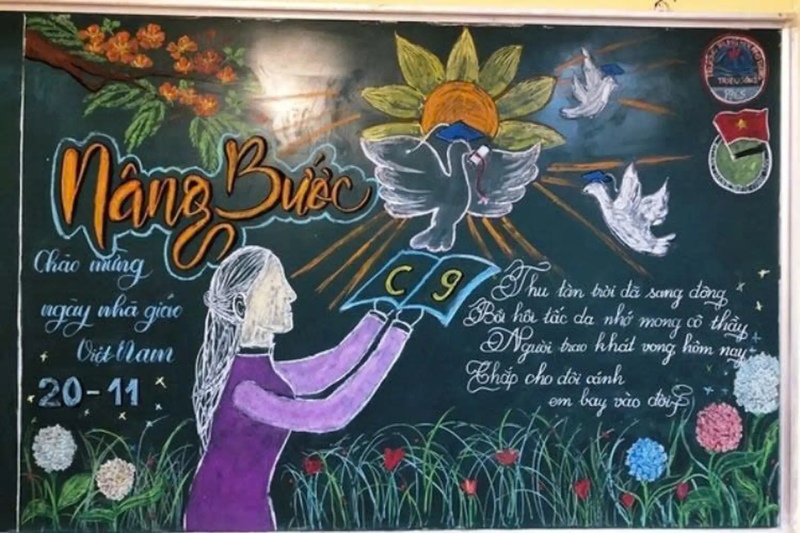 Nâng Bước
Chào mừng
ngày nhà giáo
Việt Nam
20-11
C 9
Thu tàn trời đã sang đông
Bồi hồi tấc dạ nhớ mong cô thầy
Người trao khát vọng hôm nay
Chắp cho đôi cánh
em bay vào đời